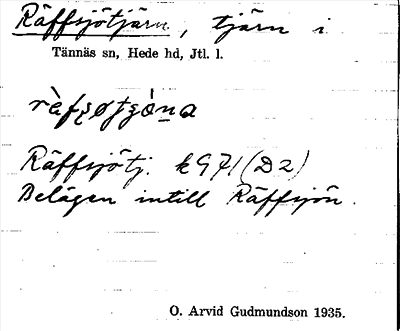 Räffsjötjärn, tjärn i
Tännäs sn, Hede hd, Jtl. l.
Räffsjötj. k971 (D2)
Belägen intill Räffsjön.
O. Arvid Gudmundson 1935.